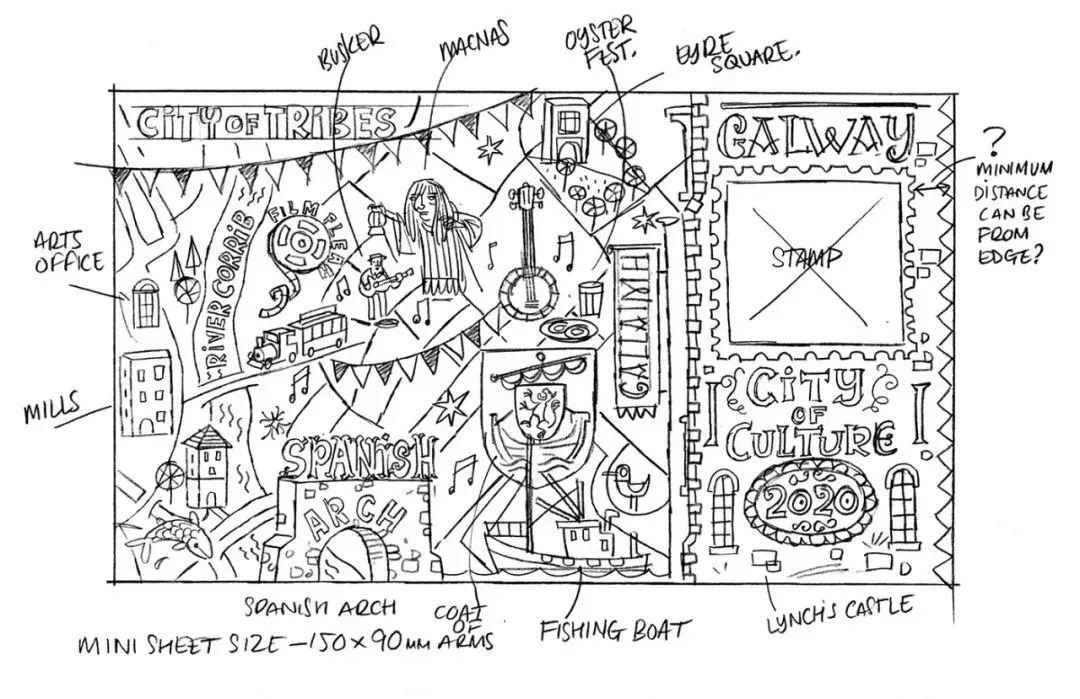 BUSKER
MACNAS
OYSTER
FEST.
EYRE
SQUARE.
CITY OF TRIBES
GALWAY
?
MINIMUM
DISTANCE
CAN BE
FROM
EDGE?
ARTS
OFFICE
RIVER CORRIB
FILM FLEADH
STAMP
GAILLIMH
MILLS
CITY
OF
CULTURE
2020
SPANISH
ARCH
SPANISH ARCH
COAT
OF
ARMS
FISHING BOAT
LYNCH'S CASTLE
MINI SHEET SIZE – 150 x 90 MM